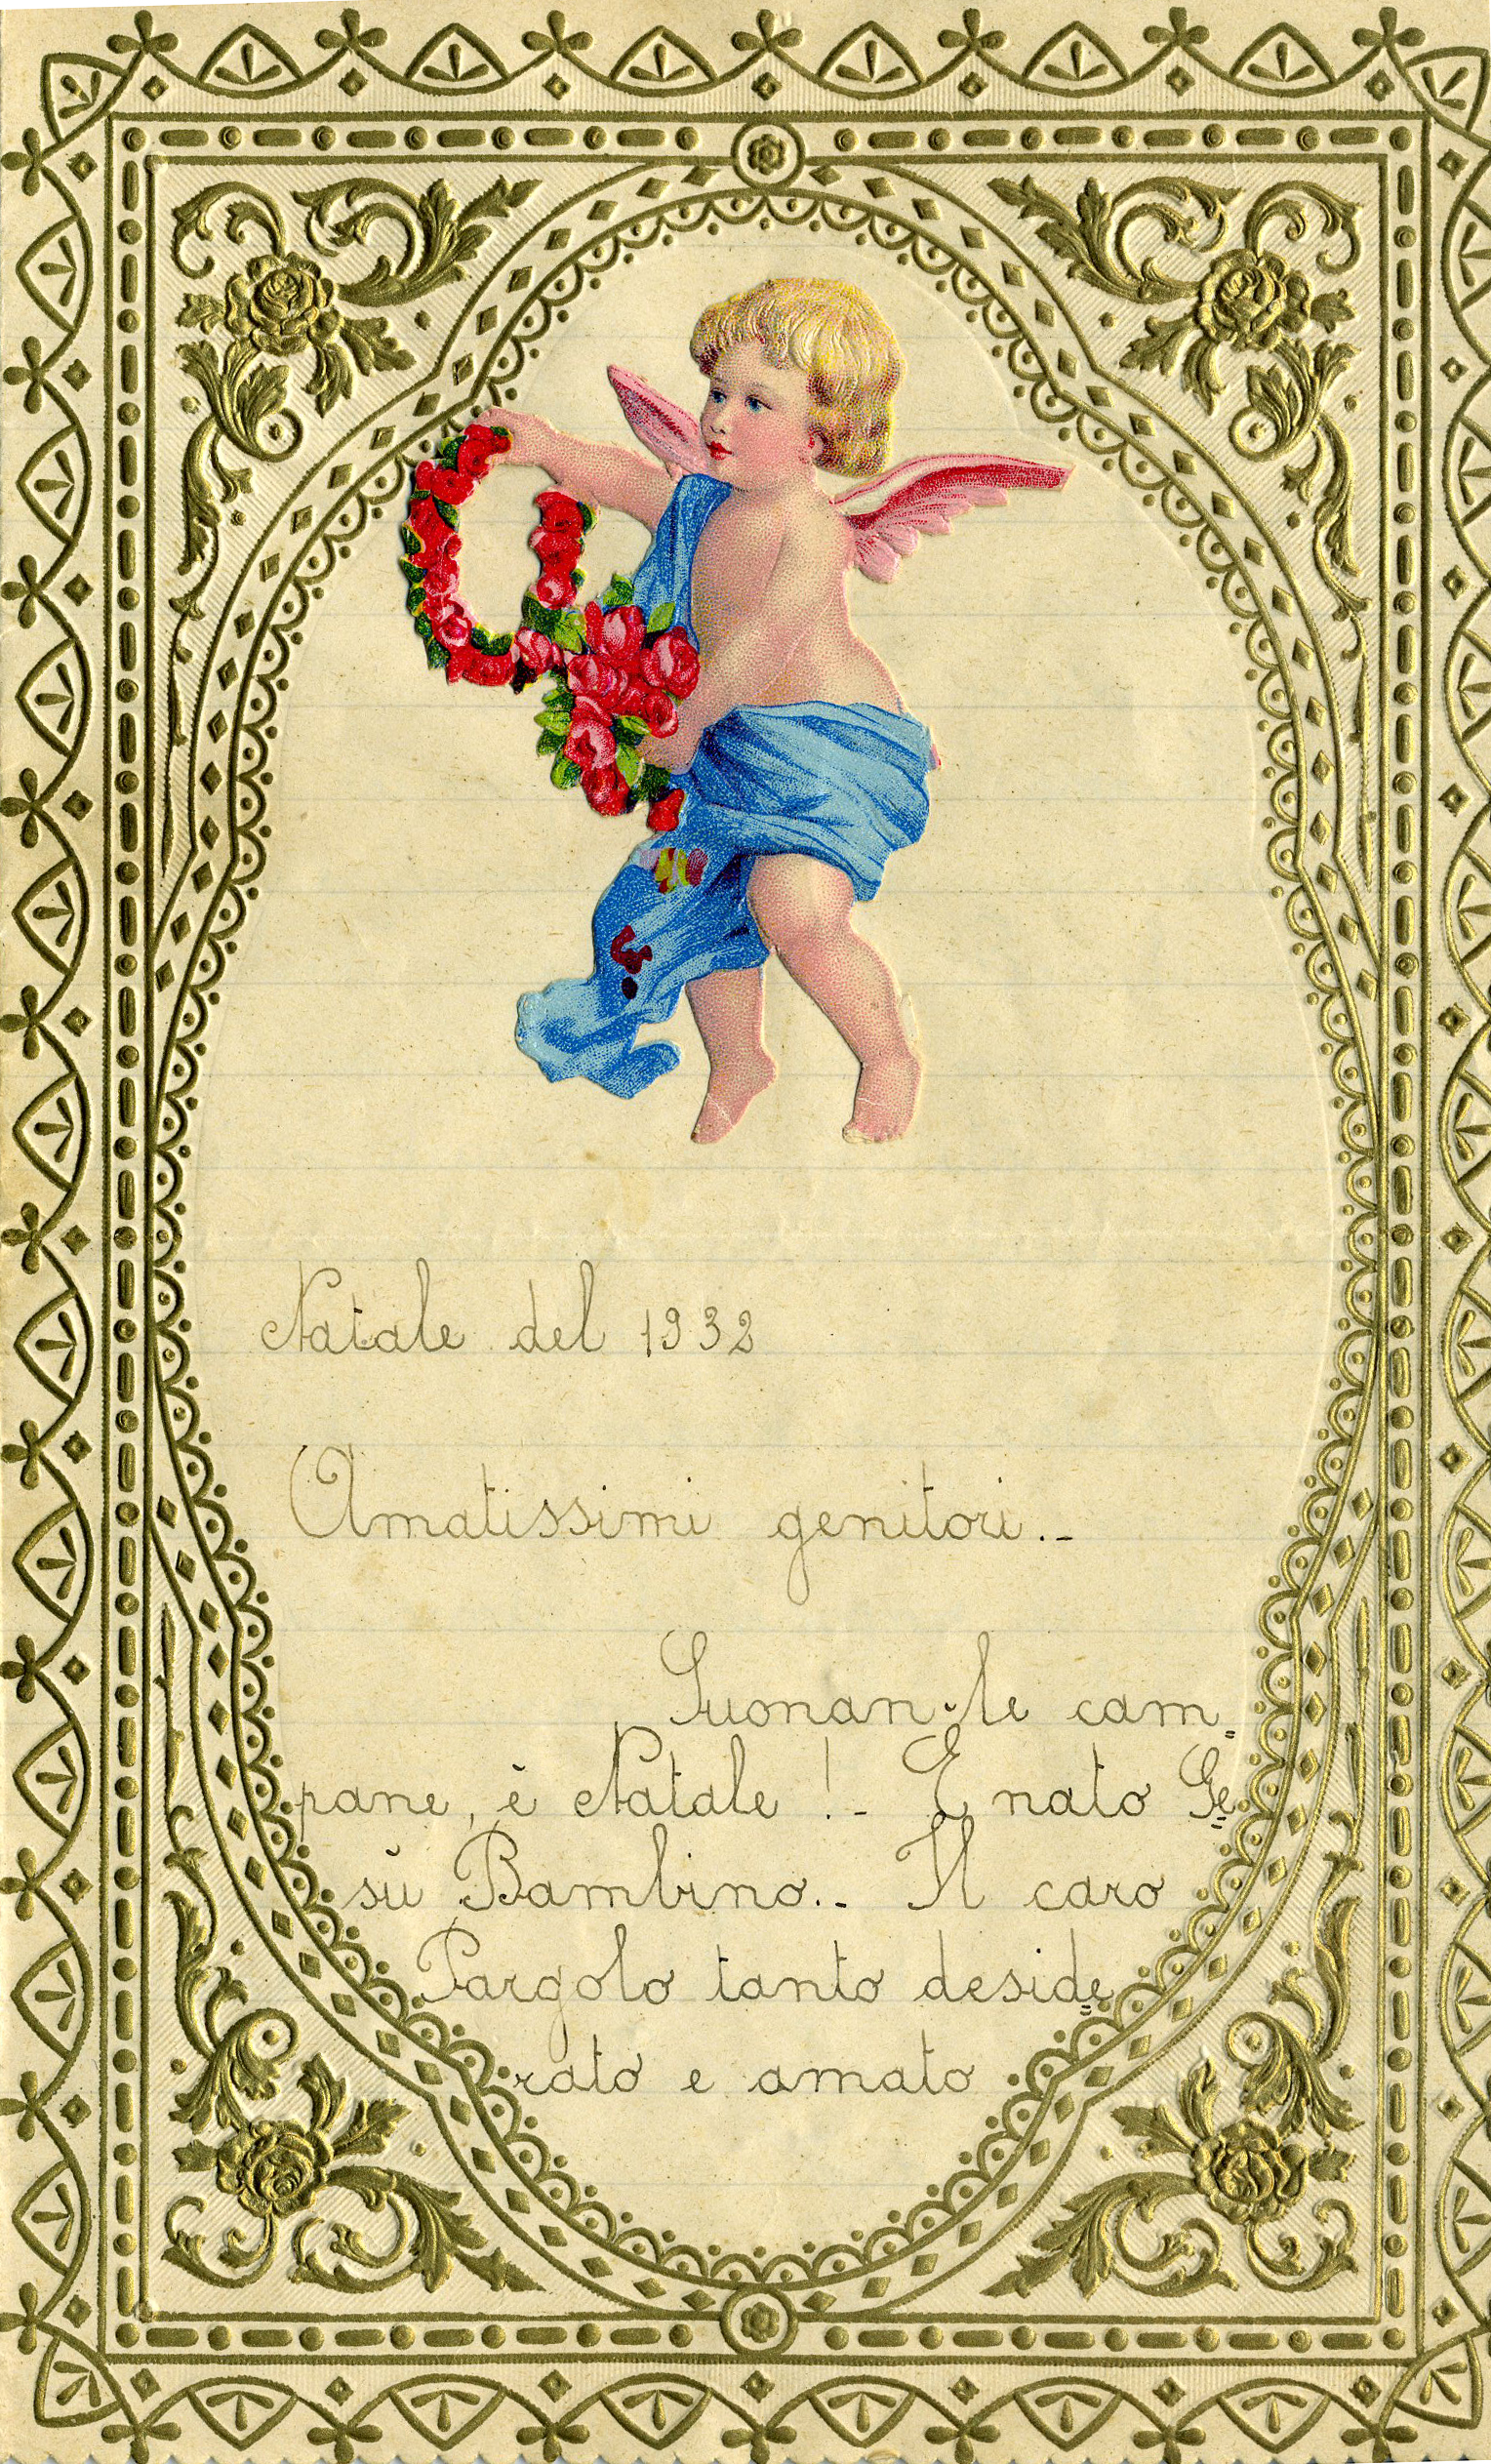 Natale del 1932
Amatissimi genitori.-
Suonan le cam=
pane, è Natale !- È nato Ge=
sù Bambino.- Il caro
Pargolo tanto deside=
rato e amato